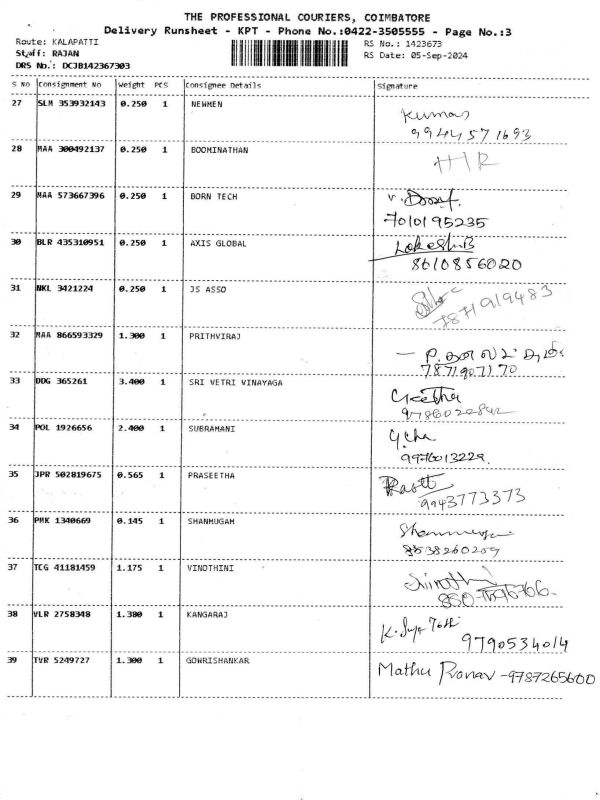 THE PROFESSIONAL COURIERS, COIMBATORE
Delivery Runsheet - KPT - Phone No.:0422-3505555 - Page No.:3
Route: KALAPATTI RS No.: 1423673
Staff: RAJAN RS Date: 05-Sep-2024
DRS No.: DCJB142367303
S No Consignment No Weight PCS Consignee Details Signature
27 SLM 353932143 0.250 1 NEWMEN Kumar
9944571693
28 MAA 300492137 0.250 1 BOOMINATHAN
29 MAA 573667396 0.250 1 BORN TECH
7010195235
30 BLR 435310951 0.250 1 AXIS GLOBAL
8610856020
31 NKL 3421224 0.250 1 JS ASSO
7871919483
32 MAA 866593329 1.300 1 PRITHVIRAJ
7871907170
33 DDG 365261 3.400 1 SRI VETRI VINAYAGA Geetha
34 POL 1926656 2.400 1 SUBRAMANI
9976013229
35 JPR 502819675 0.565 1 PRASEETHA
9943773373
36 PMK 1340669 0.145 1 SHANMUGAM
37 TCG 41181459 1.175 1 VINOTHINI
38 VLR 2758348 1.380 1 KANGARAJ
9790534014
39 TVR 5249727 1.300 1 GOWRISHANKAR Mathu Pranav -9787265600